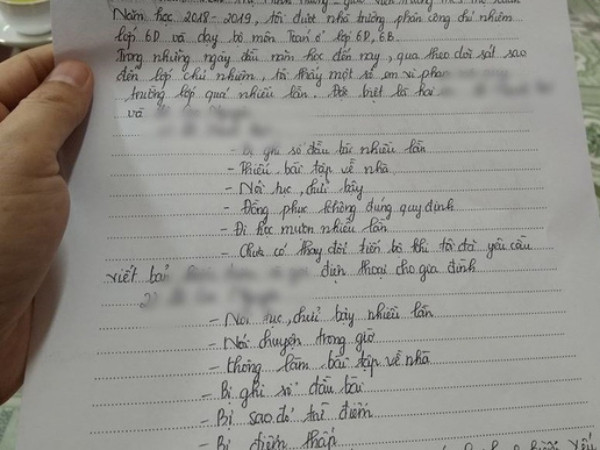 Năm học 2018-2019, tôi được nhà trường phân công chủ nhiệm
lớp 6D và dạy bộ môn Toán 6 lớp 6D, 6B.
Trong những ngày đầu năm học đến nay, qua theo dõi sát sao
đến lớp chủ nhiệm, tôi thấy một số em vi phạm
trường lớp quá nhiều lần. Đặc biệt là hai
và
- Bị ghi sổ đầu bài nhiều lần
- Thiếu bài tập về nhà
- Nói tục, chửi bậy
- Đồng phục không đúng quy định
- Đi học muộn nhiều lần
- Chưa có thay đổi tiến bộ khi tôi đã yêu cầu
viết bản điện thoại cho gia đình
- Nói tục, chửi bậy nhiều lần
- Nói chuyện trong giờ
- Không làm bài tập về nhà
- Bị ghi sổ đầu bài
- Bị sao đỏ trừ điểm
- Bị điểm thấp